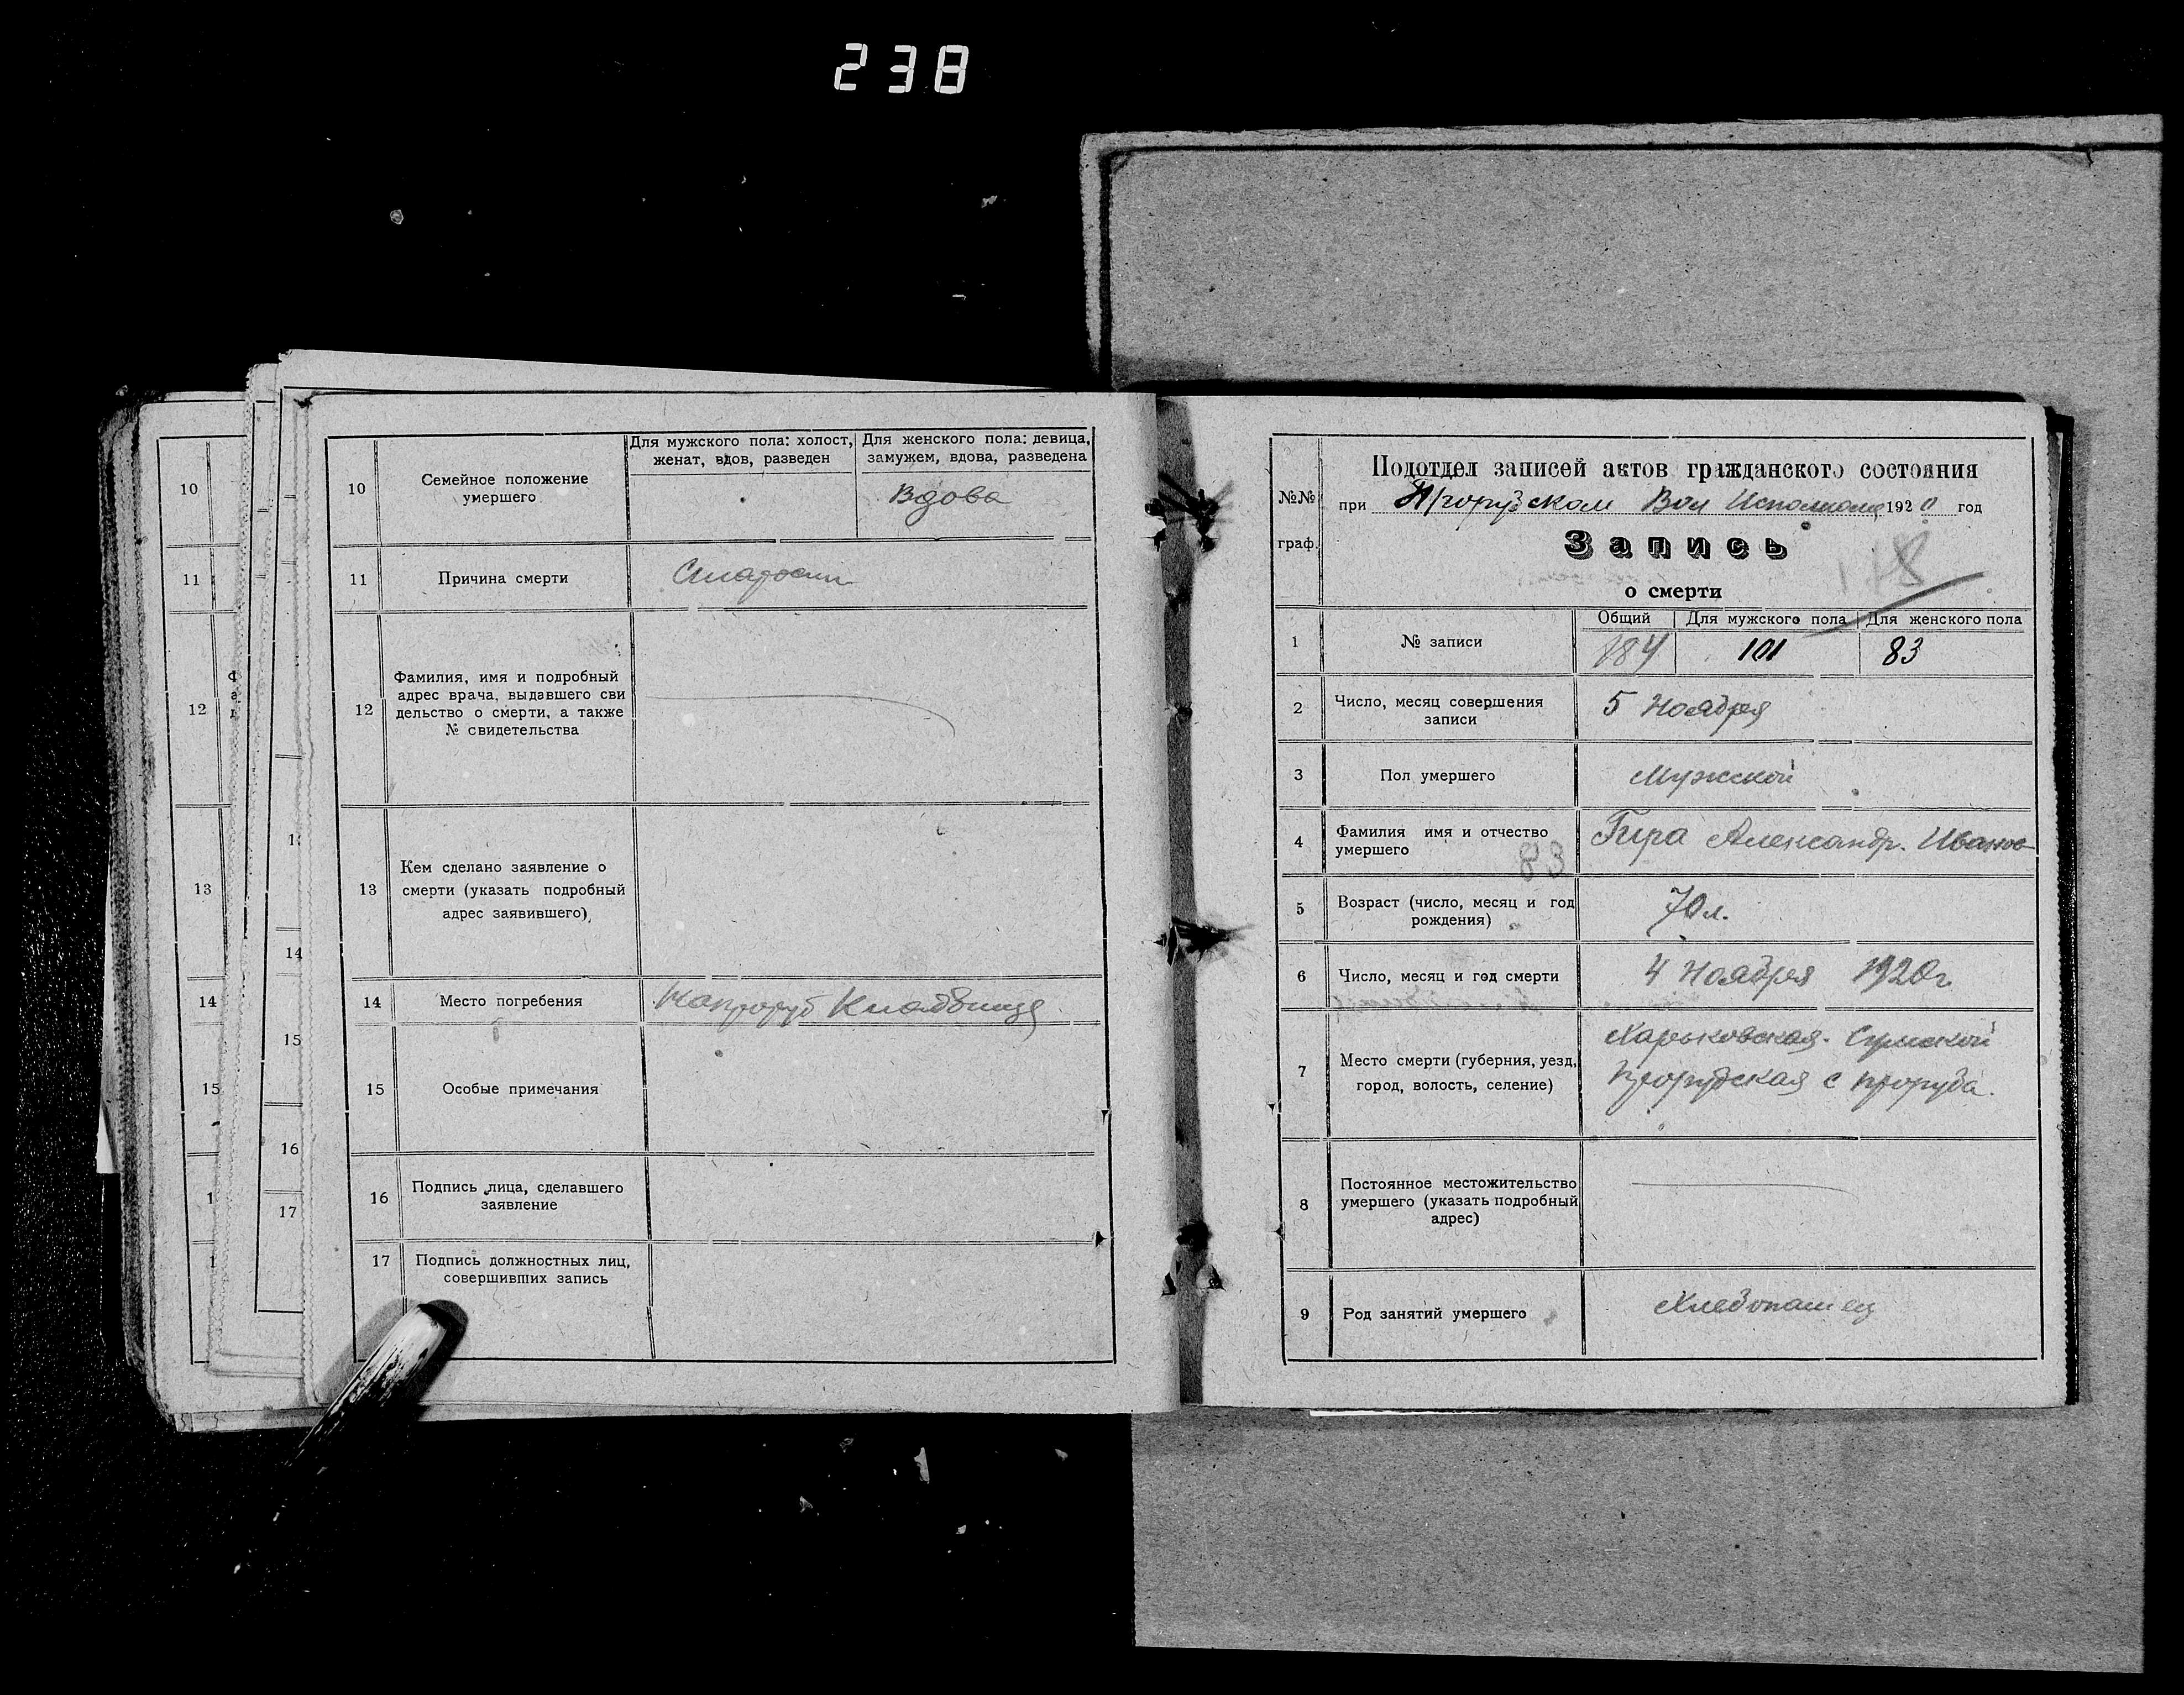 238
10
11
12
13
14
15
1
1
14
15
16
17
10
Семейное положение
умершего
Для мужского пола: холост,
женат, вдов, разведен
Для женского пола: девица,
замужем, вдова, разведена
Вдова
11
Причина смерти
Старости
12
Фамилия, имя и подробный
адрес врача, выдавшего сви
дельство о смерти, а также
№ свидетельства
13
Кем сделано заявление о
смерти (указать подробный
адрес заявившего)
14
Место погребения
15
Особые примечания
16
Подпись лица, сделавшего
заявление
17
Подпись должностных лиц,
совершивших запись
№№
граф.
Подотдел записей актов гражданского состояния
при Прорубском Вол Исполкоме 1920 год
Запись
178
о смерти
1
№ записи
Общий
Для мужского пола
Для женского пола
184
101
83
2
Число, месяц совершения
записи
5 Ноября
3
Пол умершего
Мужской
4
Фамилия имя и отчество
умершего
83
Гира Александр. Иванов
5
Возраст (число, месяц и год
рождения)
70 л.
6
Число, месяц и год смерти
4 Ноября 1920г
7
Место смерти (губерния, уезд,
город, волость, селение)
Харьковская. Сумской
Прорубская с Проруба.
8
Постоянное местожительство
умершего (указать подробный
адрес)
9
Род занятий умершего
Хлебопашец